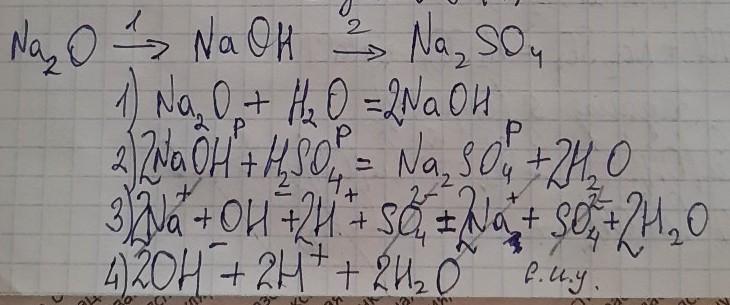 Na₂O →¹ NaOH →² Na₂SO₄
1) Na₂O + H₂O = 2NaOH
2) 2NaOHᴾ + H₂SO₄ᴾ = Na₂SO₄ᴾ + 2H₂O
3) 2Na⁺ + OH⁻ + 2H⁺ + SO₄²⁻ = 2Na⁺ + SO₄²⁻ + 2H₂O
4) 2OH⁻ + 2H⁺ + 2H₂O с.и.у.